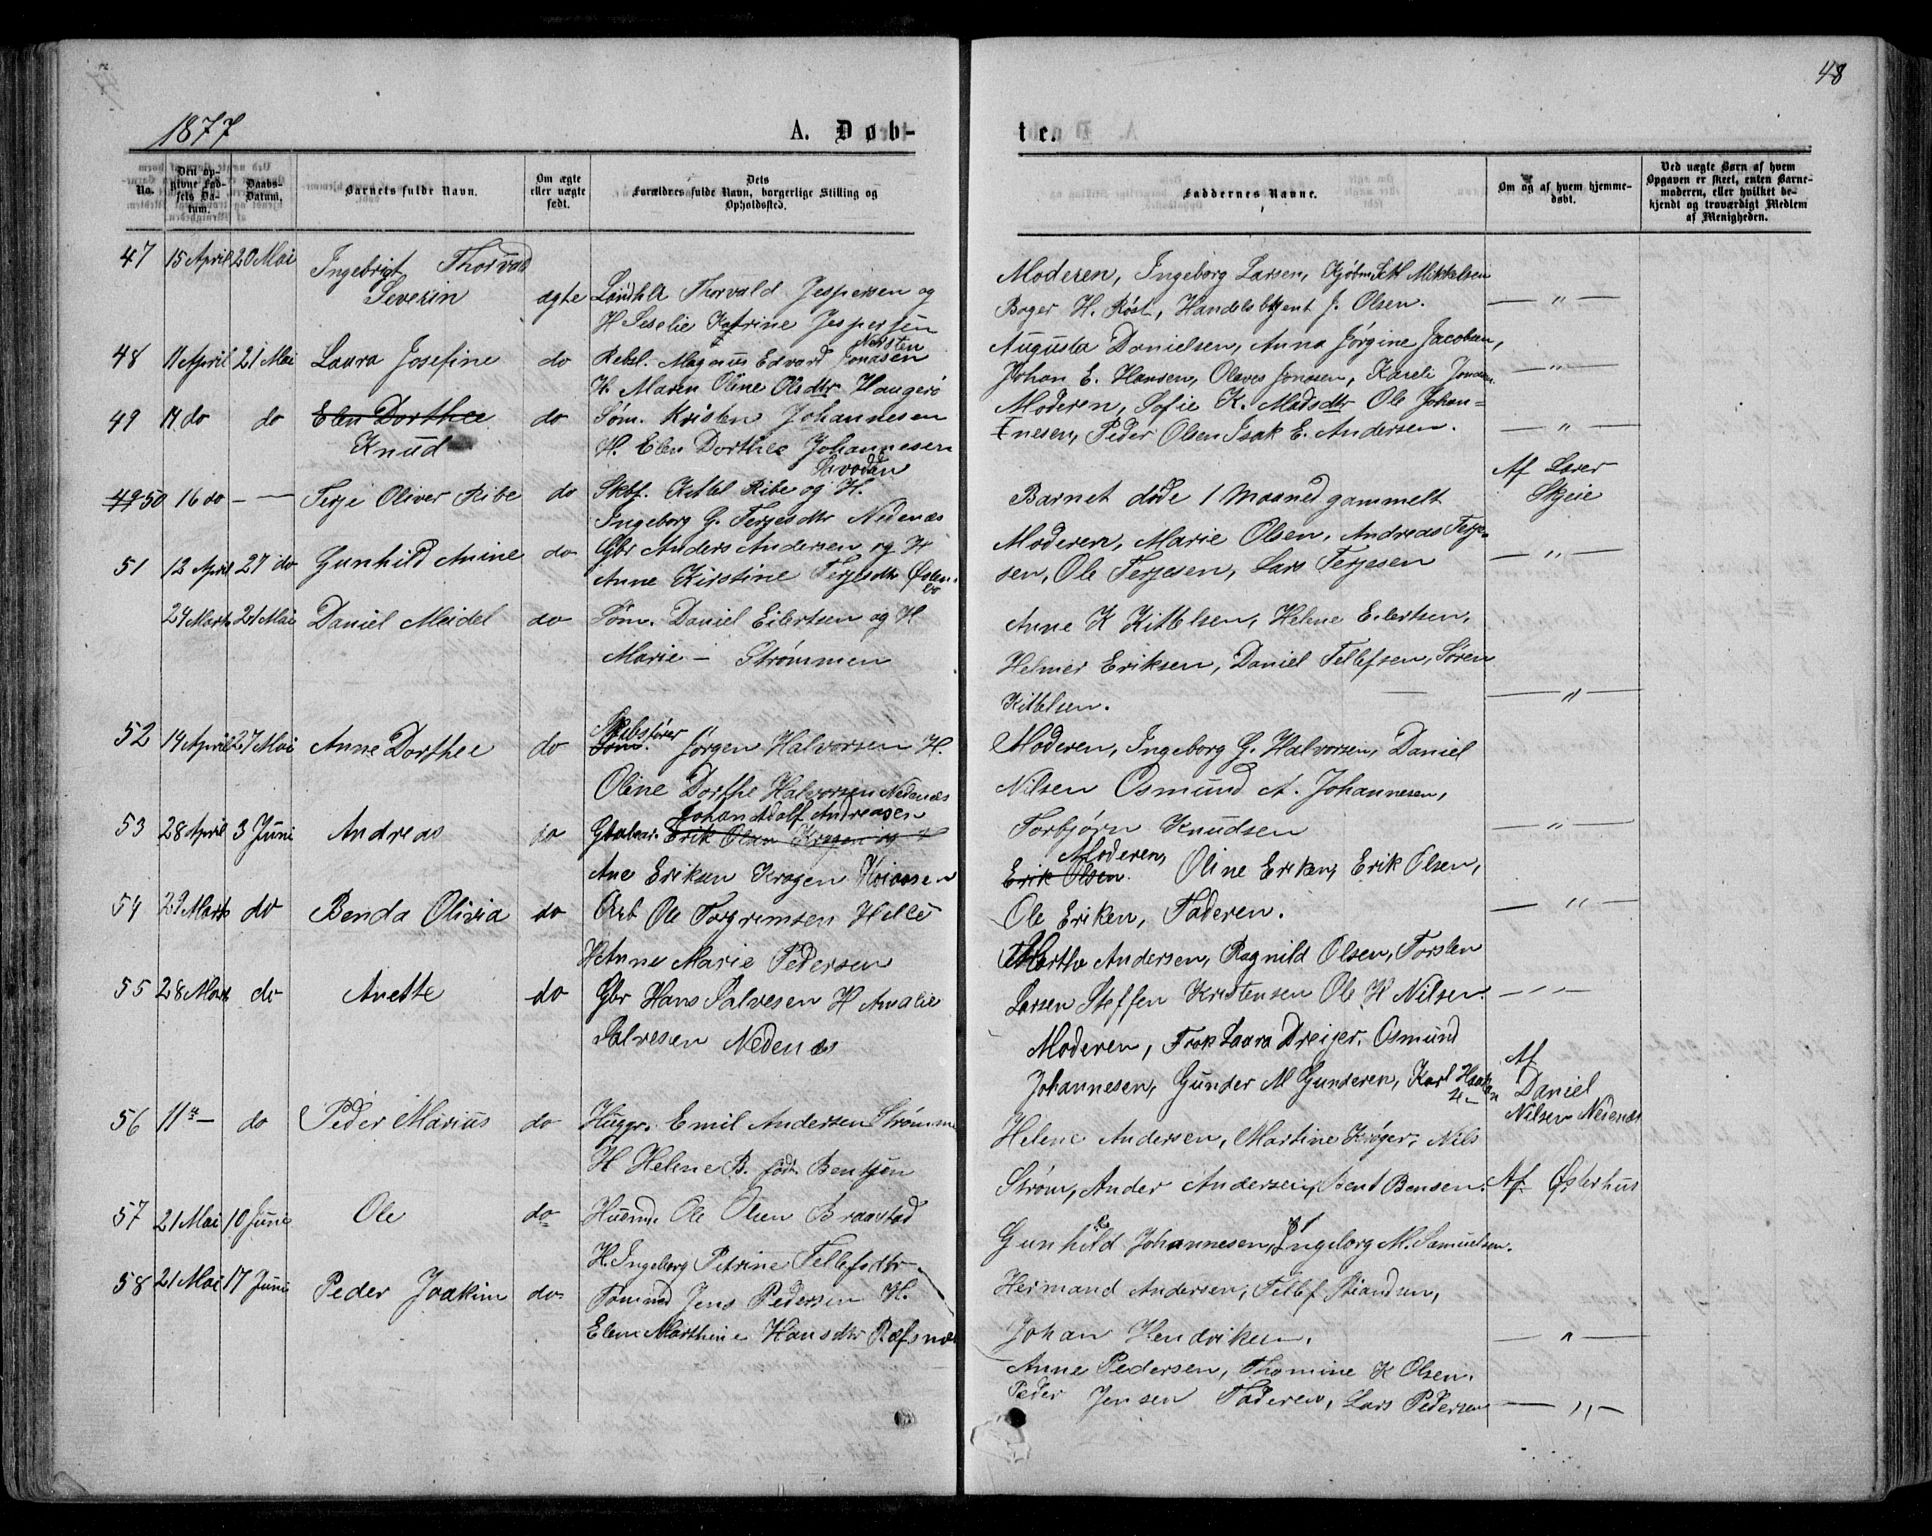 48
1877
A. Døb-
te.
No.
Den opgivne Fødsels Datum.
Daabs-Datum.
Barnets fulde Navn.
Om ægte eller uægte født.
Dets Forældres fulde Navn, borgerlige Stilling og Opholdssted.
Faddernes Navne.
Om og af hvem hjemmedøbt.
Ved uægte Børn af hvem Opgaven er skeet, enten Barnemoderen, eller hvilket bekjendt og troværdigt Medlem af Menigheden.
47 15 April 20 Mai Ingebrigt Thorvald
Severin ægte Landh. Thorvald Jespersen og
H Seselie Katrine Jespersen
Moderen, Ingeborg Larsen, Kjøbm. Mikkelsen
Bager H. Røst, Handelsbtjent J. Olsen. — " —
48 11 April 21 Mai Laura Josefine do Rebsl. Magnus Edvard Jonasen Næsten
H. Maren Oline Olsdtr Haugerø
Augusta Danielsen, Anna Jørgine Jacobsen,
Johan E. Hansen, Olaves Jonasen, Kareli Jonasen — " —
49 14 do do Elen Dorthee
Knud do Søm. Kristen Johannesen
H. Elen Dorthee Johannesen
Moderen, Sofie K. Madsdtr Ole Johan=
nesen, Peder Olsen Isak E. Andersen. — " —
49 50 16 do — — Terje Oliver Ribe do Skbf. Kittel Ribe og H.
Ingeborg G. Terjesdtr Nedenæs
Barnet døde 1 Maaned gammelt
Af Laser
Skjeie
51 12 April 27 do Gunhild Anine do Gbr Anders Andersen og H
Anne Kirstine Terjesdtr Østen-
bo
Moderen, Marie Olsen, Andreas Terje-
sen, Ole Terjesen, Lars Terjesen — " —
24 Marts 21 Mai Daniel Meidel do Søm. Daniel Eilertsen og H
Marie — Strømmen
Anne K Kittelsen, Helene Eilertsen,
Helmer Eriksen, Daniel Tellefsen, Søren
Kittelsen. — " —
52 14 April 27 Mai Anne Dorthee do Skibsfører
Søm. Jørgen Halvorsen H.
Oline Dorthe Halvorsen Nedenæs
Moderen, Ingeborg G. Halvorsen, Daniel
Nilsen Osmund A. Johannesen,
Torbjørn Knudsen — " —
53 28 April 3 Juni Andreas do Johan Adolf Andreasen
Erik Olsen Krogen og H
Ane Eriksen Krogen
Moderen,
Erik Olsen. Oline Eriken, Erik Olsen,
Ole Eriken, Faderen. — " —
54 29 Marts do Benda Olivia do Arb Ole Torgrimsen Helle
H Anne Marie Pedersen
Martha Andersen, Ragnild Olsen, Torsten
Larsen Steffen Kristensen Ole H Nilsen. — " —
55 28 Marts do Anette do Gbr Hans Salvesen H Amalie
Salvesen Nedenæs
Moderen, Frøk Laura Dreijer, Osmund
Johannesen, Gunder M Gunderen, Karl
Af
Daniel
Nilsen Nedenæs
56 11te — do Peder Marius do Huggr. Emil Andersen Strømme
H Helene B. født Bentsen
Helene Andersen, Martine Krøger, Nils
Strøm, Ander Andersen, Bent Bensen. Af Østerhus
57 21 Mai 10 Juni Ole do Husmd. Ole Olsen Braastad
H. Ingeborg Petrine Tellefsdtr
Gunhild Johannesen, Ingeborg M. Samuelsen.
Hermand Andersen, Tellef Stiandsen,
Johan Hendriksen. — " —
58 21 Mai 17 Juni Peder Joakim do Tømmd Jens Pedersen H.
Elene Marthine Hansdtr Ræfsnæs
Anne Pedersen, Thomine K Olsen.
Peder Jensen Faderen, Lars Pedersen — " —